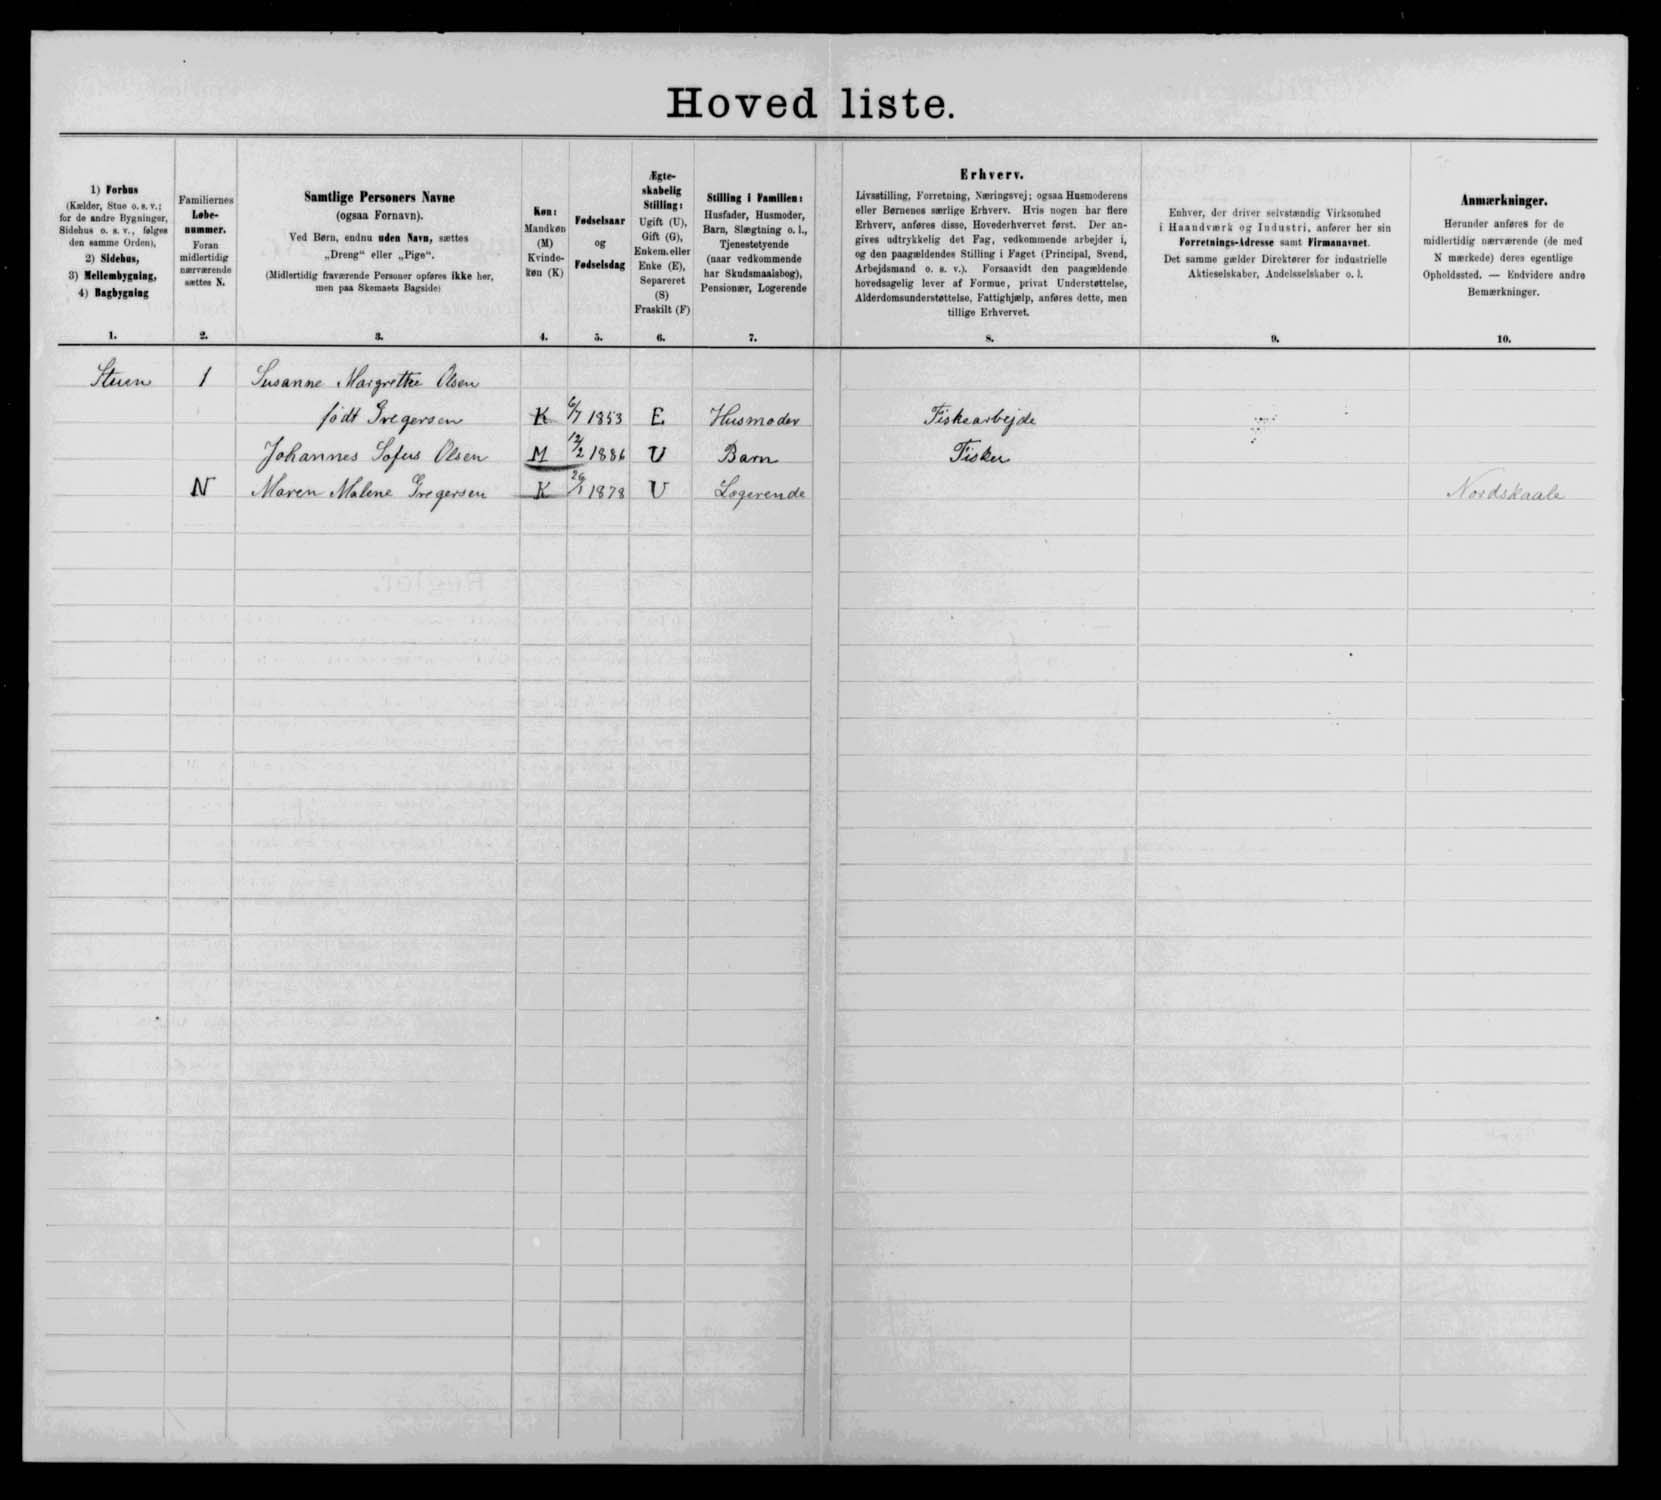 Hoved liste.
1) Forhus
(Kælder, Stue o. s. v.;
for de andre Bygninger,
Sidehus o. s. v., følges
den samme Orden),
2) Sidehus,
3) Mellembygning,
4) Bagbygning
1.
Familiernes
Løbe-
nummer.
Foran
midlertidig
nærværende
sættes N.
2.
Samtlige Personers Navne
(ogsaa Fornavn).
Ved Børn, endnu uden Navn, sættes
„Dreng“ eller „Pige“.
(Midlertidig fraværende Personer opføres ikke her,
men paa Skemaets Bagside)
3.
Køn:
Mandkøn
(M)
Kvinde-
køn (K)
4.
Fødselsaar
og
Fødselsdag
5.
Ægte-
skabelig
Stilling:
Ugift (U),
Gift (G),
Enkem. eller
Enke (E),
Separeret
(S)
Fraskilt (F)
6.
Stilling i Familien:
Husfader, Husmoder,
Barn, Slægtning o. l.,
Tjenestetyende
(naar vedkommende
har Skudsmaalsbog),
Pensionær, Logerende
7.
Erhverv.
Livsstilling, Forretning, Næringsvej; ogsaa Husmoderens
eller Børnenes særlige Erhverv. Hvis nogen har flere
Erhverv, anføres disse, Hovederhvervet først. Der an-
gives udtrykkelig det Fag, vedkommende arbejder i,
og den paagældendes Stilling i Faget (Principal, Svend,
Arbejdsmand o. s. v.). Forsaavidt den paagældende
hovedsagelig lever af Formue, privat Understøttelse,
Alderdomsunderstøttelse, Fattighjælp, anføres dette, men
tillige Erhvervet.
8.
Enhver, der driver selvstændig Virksomhed
i Haandværk og Industri, anfører her sin
Forretnings-Adresse samt Firmanavnet.
Det samme gælder Direktører for industrielle
Aktieselskaber, Andelsselskaber o. l.
9.
Anmærkninger.
Herunder anføres for de
midlertidig nærværende (de med
N mærkede) deres egentlige
Opholdssted. — Endvidere andre
Bemærkninger.
10.
Stuen 1 Susanne Margrethe Olsen
født Gregersen K 6/7 1853 E Husmoder Fiskearbejde
Johannes Sofus Olsen M 12/2 1886 U Barn Fisker
N Maren Malene Gregersen K 1878 U Logerende Nordskaale